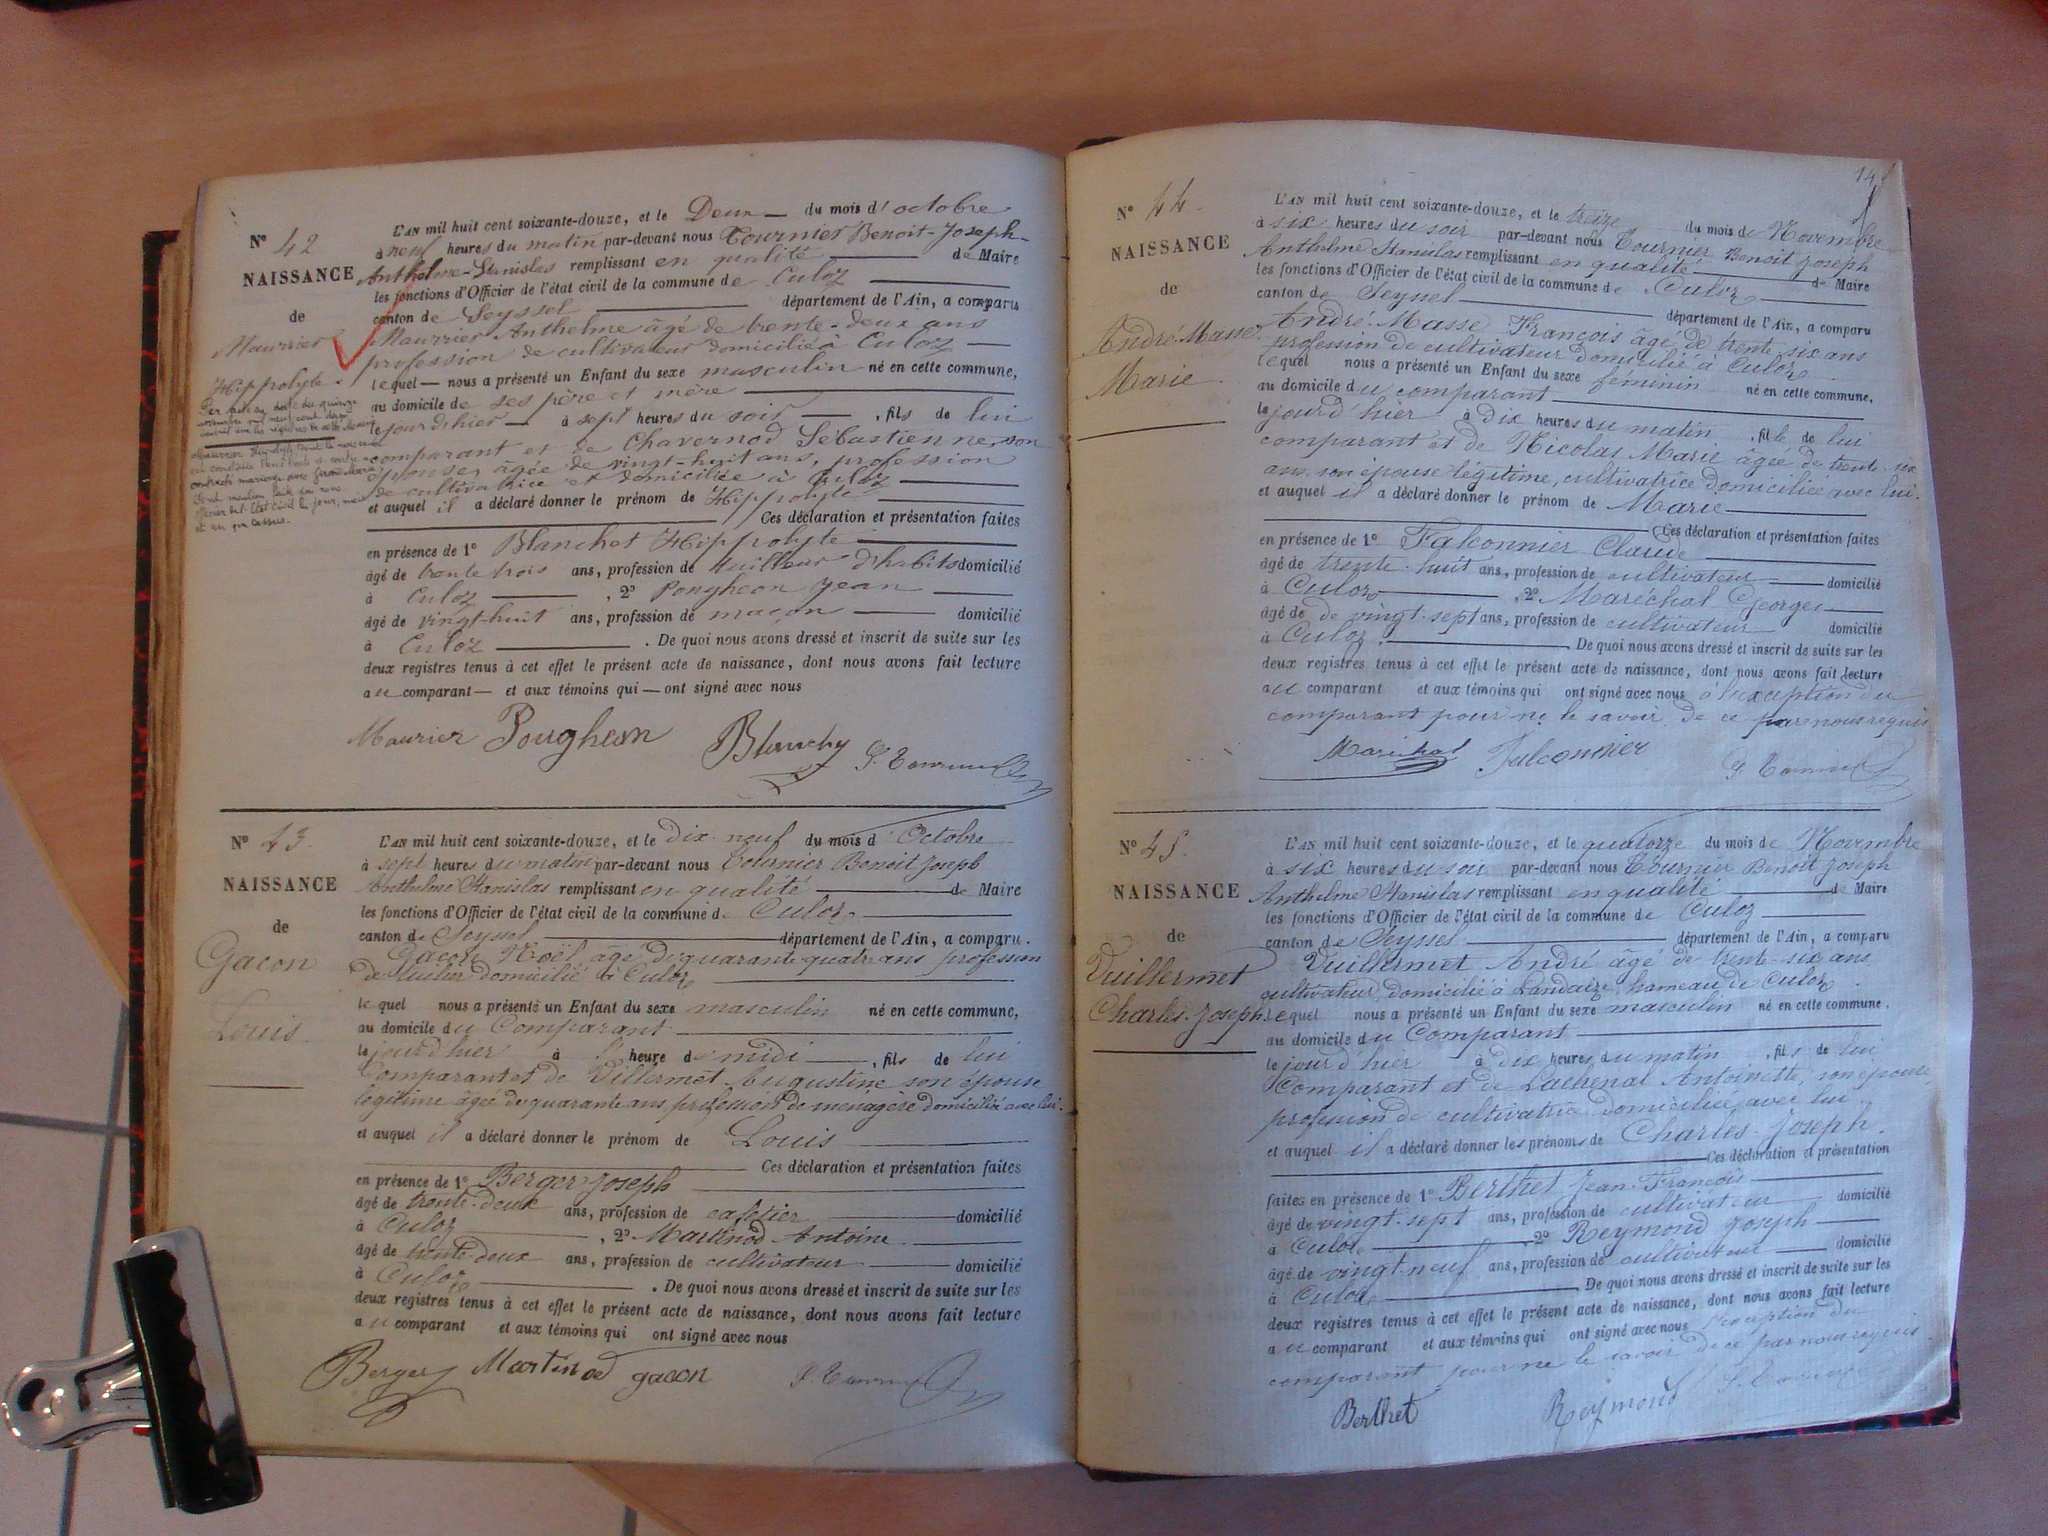 N° 42
NAISSANCE
de
Maurrier
Hippolyte
L'AN mil huit cent soixante-douze, et le Deux du mois d'octobre
à neuf heures du matin par-devant nous Tournier Benoit-Joseph-
Anthelme-Stanislas remplissant en qualité de Maire
les fonctions d'Officier de l'état civil de la commune de Culoz
canton de Seyssel département de l'Ain, a comparu
Maurrier Anthelme âgé de trente-deux ans
profession de cultivateur domicilié à Culoz
lequel nous a présenté un Enfant du sexe masculin né en cette commune,
au domicile de ses père et mère
le jour d'hier à sept heures du soir, fils de lui
comparant et de Chavernod Sébastienne, son
épouse, âgée de vingt-huit ans, profession
de cultivatrice et domiciliée à Culoz
et auquel il a déclaré donner le prénom de Hippolyte
Ces déclaration et présentation faites
en présence de 1° Blanchet Hippolyte
âgé de trente trois ans, profession de tailleur d'habits domicilié
à Culoz, 2° Pongheon Jean
âgé de vingt-huit ans, profession de maçon domicilié
à Culoz. De quoi nous avons dressé et inscrit de suite sur les
deux registres tenus à cet effet le présent acte de naissance, dont nous avons fait lecture
au comparant et aux témoins qui ont signé avec nous
Maurier Pougheon
N° 43
NAISSANCE
de
Gacon
Louis
L'AN mil huit cent soixante-douze, et le dix neuf du mois d'Octobre
à sept heures du matin par-devant nous Tournier Benoit Joseph
Anthelme Stanislas remplissant en qualité de Maire
les fonctions d'Officier de l'état civil de la commune de Culoz
canton de Seyssel département de l'Ain, a comparu.
Gacon Noël, âgé de quarante quatre ans profession
de domicilié à Culoz
lequel nous a présenté un Enfant du sexe masculin né en cette commune,
au domicile du Comparant
le jour d'hier à heure de midi, fils de lui
Comparant et de Villermet Augustine son épouse
légitime âgée de quarante ans profession de ménagère domiciliée avec lui.
et auquel il a déclaré donner le prénom de Louis
Ces déclaration et présentation faites
en présence de 1° Berger Joseph
âgé de trente-deux ans, profession de cafetier domicilié
à Culoz, 2° Martinod Antoine
âgé de trente-deux ans, profession de cultivateur domicilié
à Culoz. De quoi nous avons dressé et inscrit de suite sur les
deux registres tenus à cet effet le présent acte de naissance, dont nous avons fait lecture
au comparant et aux témoins qui ont signé avec nous
Berger Martinod gacon
14
N° 44.
NAISSANCE
de
André-Masse
Marie
L'AN mil huit cent soixante-douze, et le treize du mois de Novembre
à six heures du soir par-devant nous Tournier Benoit Joseph
Anthelme Stanislas remplissant en qualité de Maire
les fonctions d'Officier de l'état civil de la commune de Culoz
canton de Seyssel département de l'Ain, a comparu
André-Masse François âgé de trente-six ans
profession de cultivateur domicilié à Culoz
lequel nous a présenté un Enfant du sexe féminin né en cette commune,
au domicile du comparant
le jour d'hier à dix heures du matin, fille de lui
comparant et de Nicolas Marie âgée de trente-six
ans son épouse légitime, cultivatrice domiciliée avec lui.
et auquel il a déclaré donner le prénom de Marie
Ces déclaration et présentation faites
en présence de 1° Falconnier Claude
âgé de trente-huit ans, profession de cultivateur domicilié
à Culoz, 2° Maréchal Georges
âgé de de vingt-sept ans, profession de cultivateur domicilié
à Culoz. De quoi nous avons dressé et inscrit de suite sur les
deux registres tenus à cet effet le présent acte de naissance, dont nous avons fait lecture
au comparant et aux témoins qui ont signé avec nous à l'exception du
comparant pour ne le savoir de ce par nous requis
Maréchal Falconnier
N° 45.
NAISSANCE
de
Vuillermet
Charles-Joseph
L'AN mil huit cent soixante-douze, et le quatorze du mois de Novembre
à six heures du soir par-devant nous Tournier Benoit Joseph
Anthelme Stanislas remplissant en qualité de Maire
les fonctions d'Officier de l'état civil de la commune de Culoz
canton de Seyssel département de l'Ain, a comparu
Vuillermet André âgé de trente-six ans
cultivateur, domicilié à Landaize, hameau de Culoz
lequel nous a présenté un Enfant du sexe masculin né en cette commune.
au domicile du Comparant
le jour d'hier à dix heures du matin, fils de lui
Comparant et de Lachenal Antoinette, son épouse
profession de cultivatrice domiciliée avec lui.
et auquel il a déclaré donner les prénoms de Charles-Joseph.
Ces déclaration et présentation
faites en présence de 1° Berthet Jean-François
âgé de vingt-sept ans, profession de cultivateur domicilié
à Culoz, 2° Reymond Joseph
âgé de vingt-neuf ans, profession de cultivateur domicilié
à Culoz. De quoi nous avons dressé et inscrit de suite sur les
deux registres tenus à cet effet le présent acte de naissance, dont nous avons fait lecture
au comparant et aux témoins qui ont signé avec nous l'exception du
comparant pour ne le savoir de ce par nous requis
Berthet Reymond